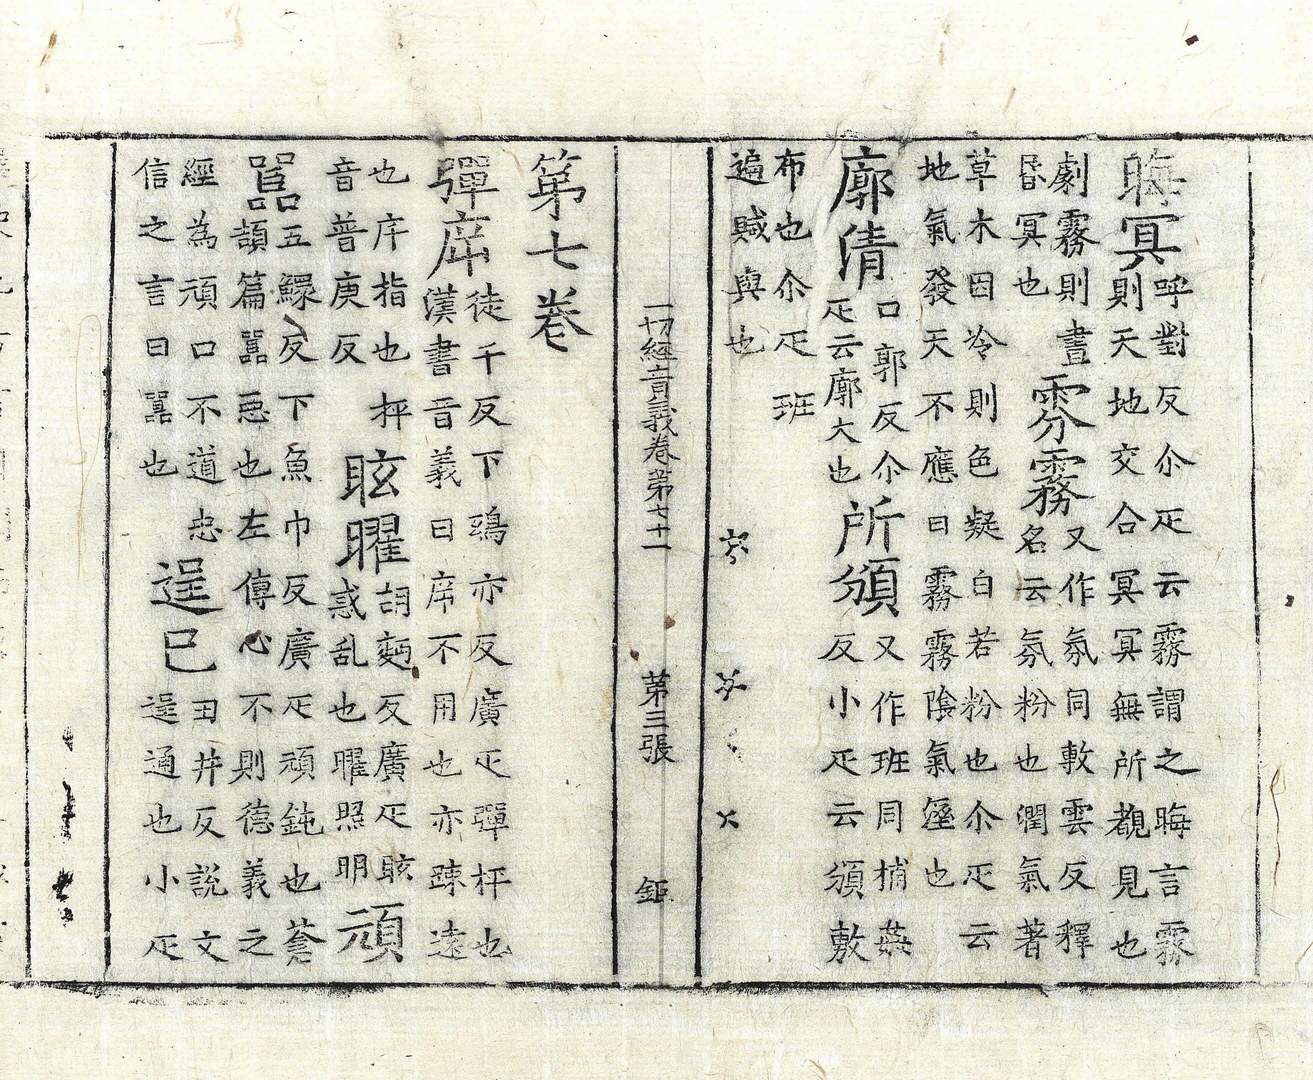 晦冥呼對反尒疋云霧謂之晦言霧則天地交合冥冥無所覩見也
劇霧則晝昏冥也雰霧又作氛同敷雲反釋名云氛粉也潤氣著
草木因冷則色凝白若粉也尒疋云地氣發天不應曰霧霧隂氣溼也
廓清口郭反尒疋云廓大也所頒又作班同捕葌反小疋云頒敷
布也尒疋班遍賦與也
一切經音義卷第七十一 第三張 鉅
第七卷
彈斥徒干反下鵄亦反廣疋彈枰也漢書音義曰斥不用也亦疎遠
也斥指也枰音普庚反眩曜胡麪反廣疋眩惑乱也曜照明頑
嚚五鰥反下魚巾反廣疋頑鈍也蒼頡篇嚚惡也左傳心不則德義之
經為頑口不道忠信之言曰嚚也逞已丑井反說文逞通也小疋